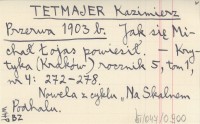 TETMAJER Kazimierz
Przerwa 1903 b. Jak się Mi-
chał Łojas powiesił. – Kry-
tyka (Kraków) rocznik 5, tom 1,
nr 4: 272-278.
Nowela z cyklu „Na Skalnem
Podhalu.
BZ